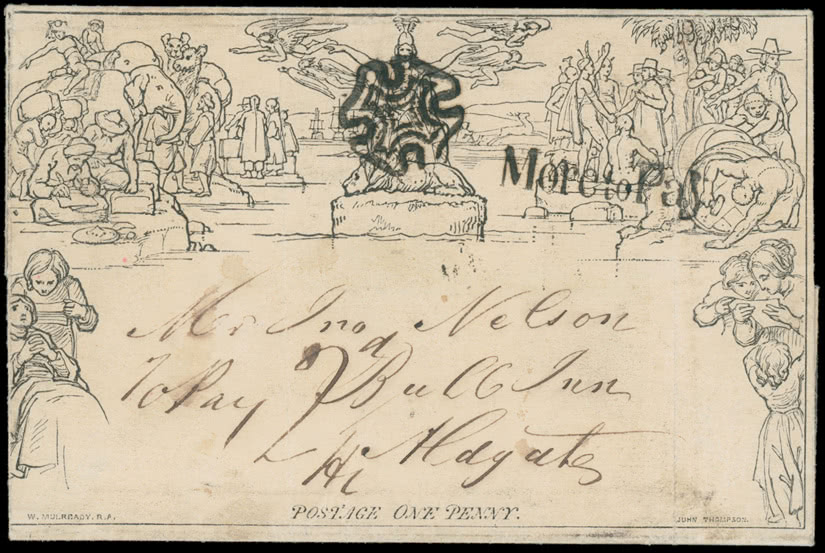 More to Pay
Mr Jno Nelson
To Pay Bull Inn
Aldgate
POSTAGE ONE PENNY.
W. MULREADY. R.A.
JOHN THOMPSON.